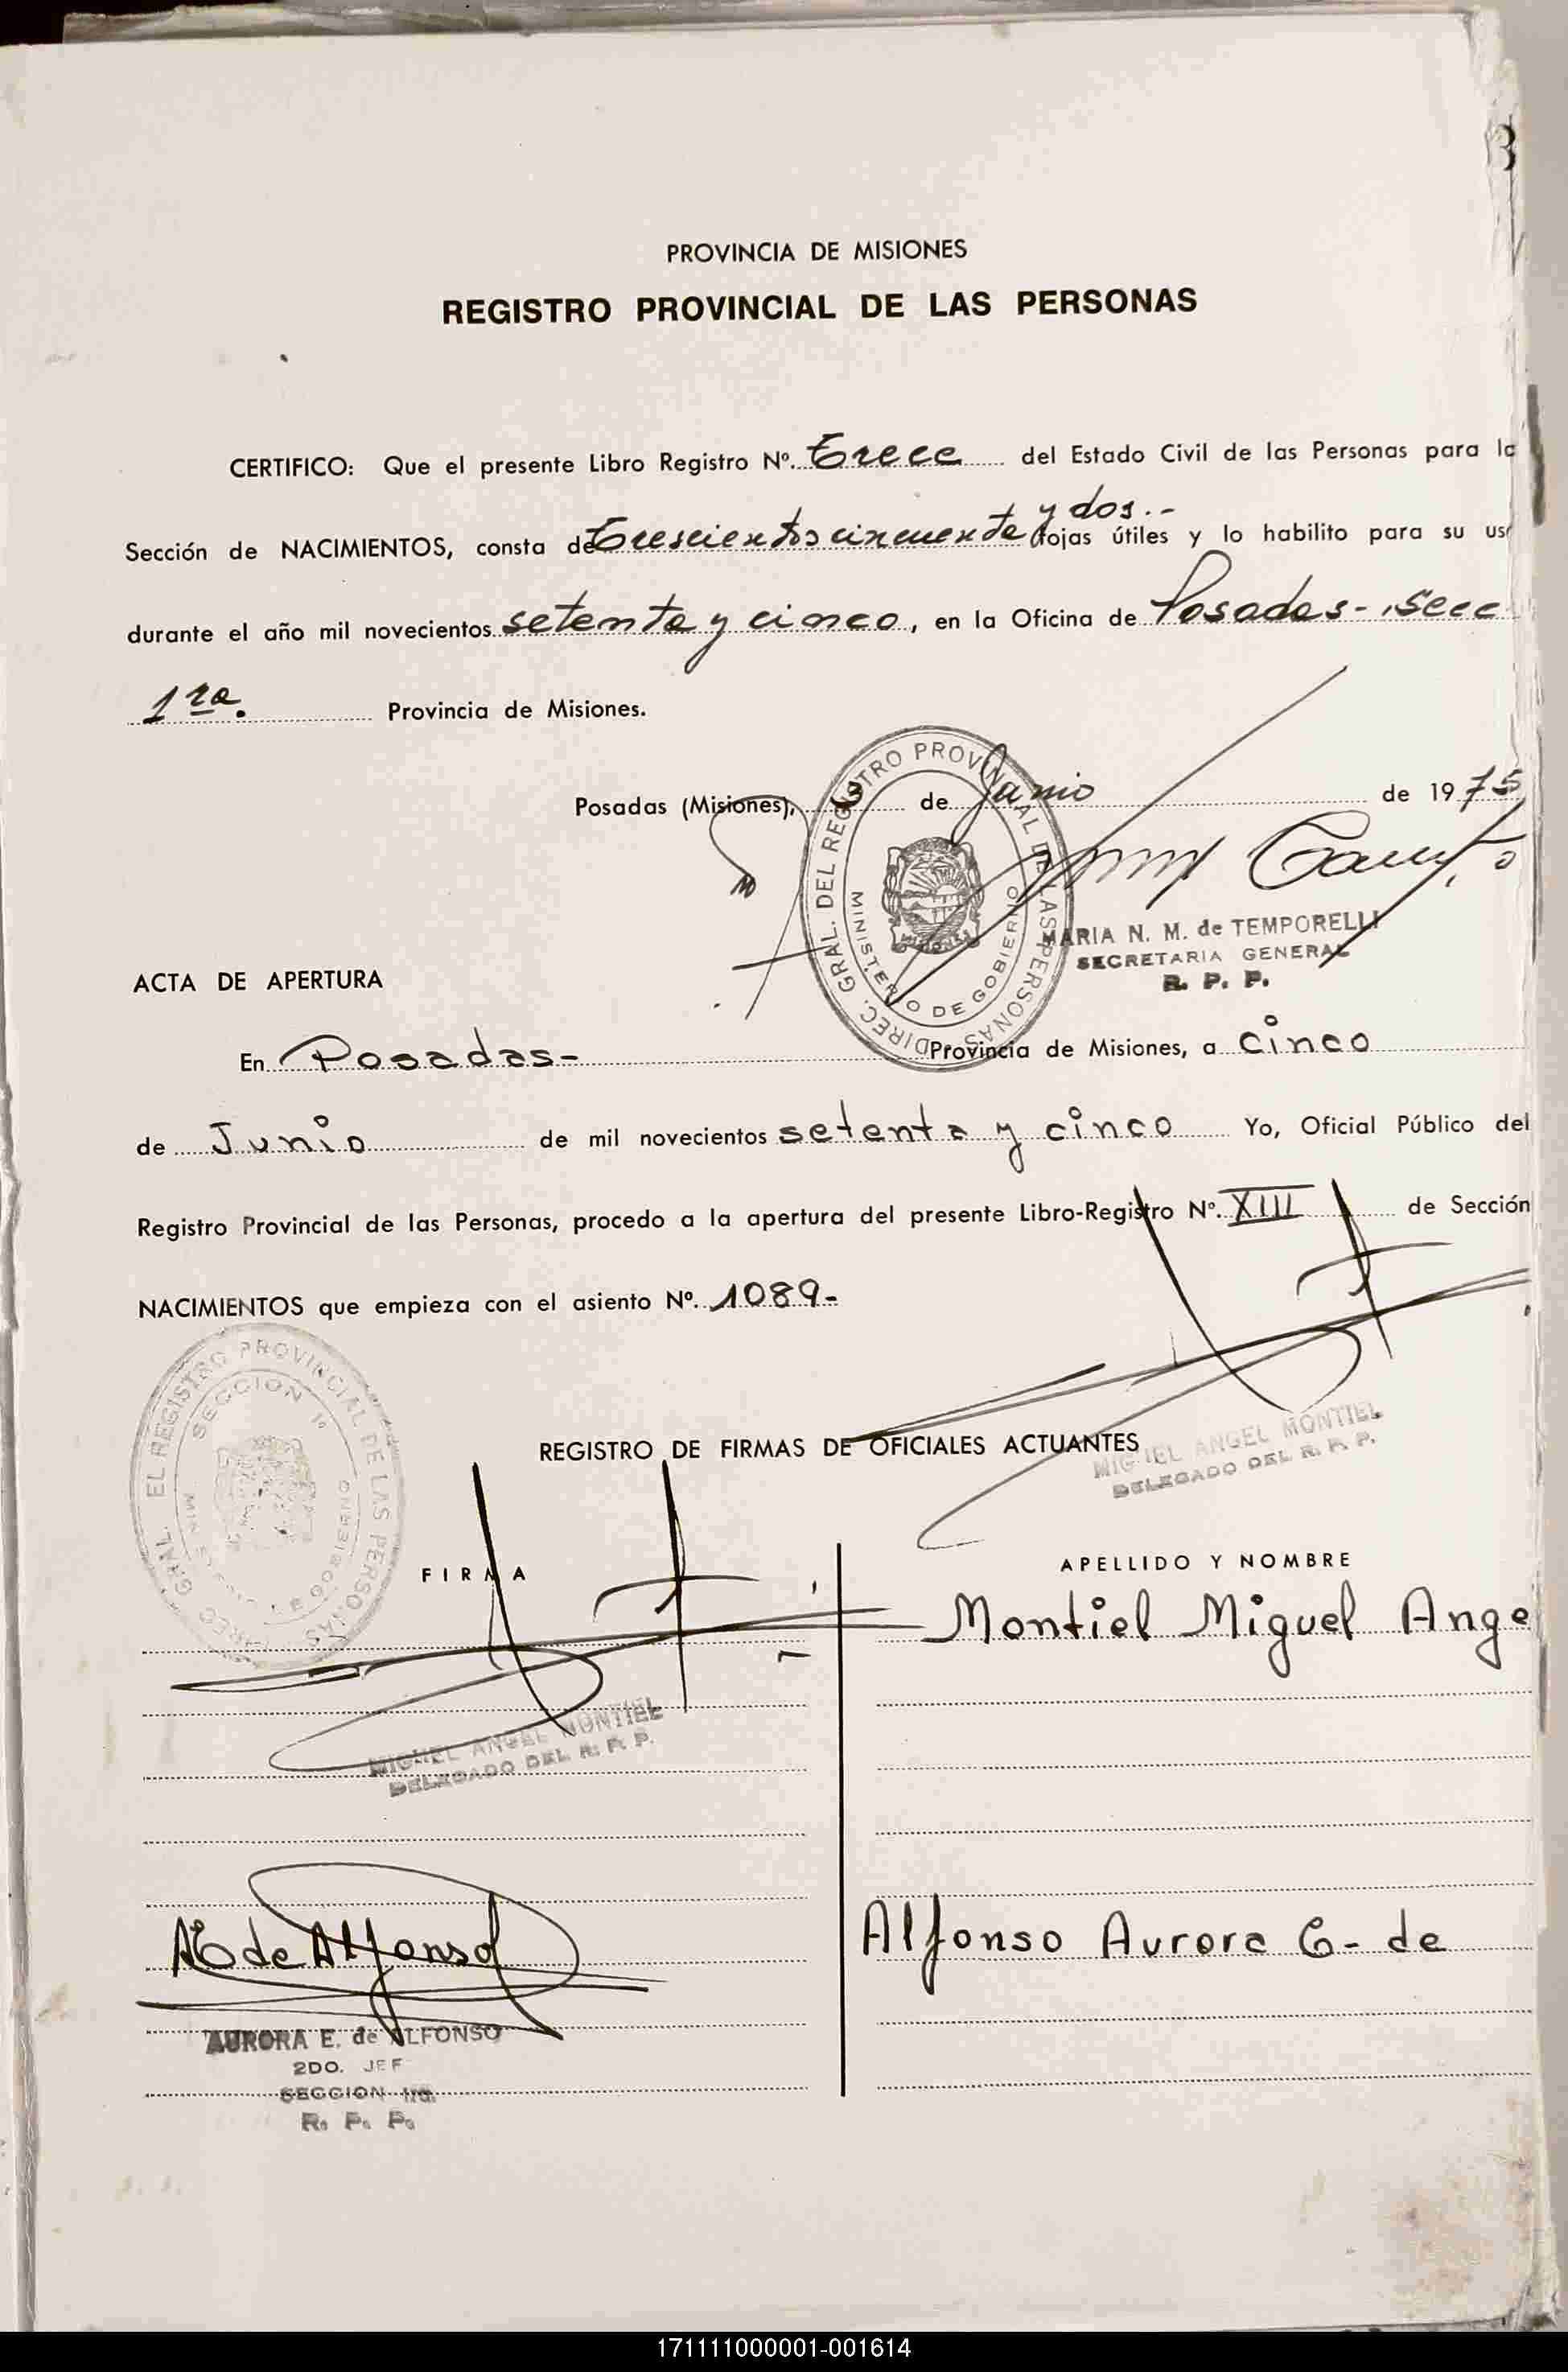 13
PROVINCIA DE MISIONES
REGISTRO PROVINCIAL DE LAS PERSONAS
CERTIFICO: Que el presente Libro Registro Nº. Trece del Estado Civil de las Personas para la
y dos.-
Sección de NACIMIENTOS, consta de Trescientos cincuenta fojas útiles y lo habilito para su uso
durante el año mil novecientos setenta y cinco, en la Oficina de Posadas-, Secc
1ra. Provincia de Misiones.
Posadas (Misiones), de Junio de 1975
DIREC. GRAL. DEL REGISTRO PROVINCIAL DE LAS PERSONAS
MINISTERIO DE GOBIERNO
MARIA N. M. de TEMPORELLI
SECRETARIA GENERAL
R. P. P.
ACTA DE APERTURA
En Posadas- Provincia de Misiones, a cinco
de Junio de mil novecientos setenta y cinco Yo, Oficial Público del
Registro Provincial de las Personas, procedo a la apertura del presente Libro-Registro Nº. XIII de Sección
NACIMIENTOS que empieza con el asiento Nº. 1089-
GRAL. EL REGISTRO PROVINCIAL DE LAS PERSONAS
SECCION 1º
GOBIERNO
MIGUEL ANGEL MONTIEL
DELEGADO DEL R. P. P.
REGISTRO DE FIRMAS DE OFICIALES ACTUANTES
FIRMA
APELLIDO Y NOMBRE
Montiel Miguel Ange
MIGUEL ANGEL MONTIEL
DELEGADO DEL R. P. P.
AE de Alfonso
Alfonso Aurora E- de
AURORA E. de ALFONSO
2DO. JEF
SECCION 1ra.
R. P. P.
171111000001-001614